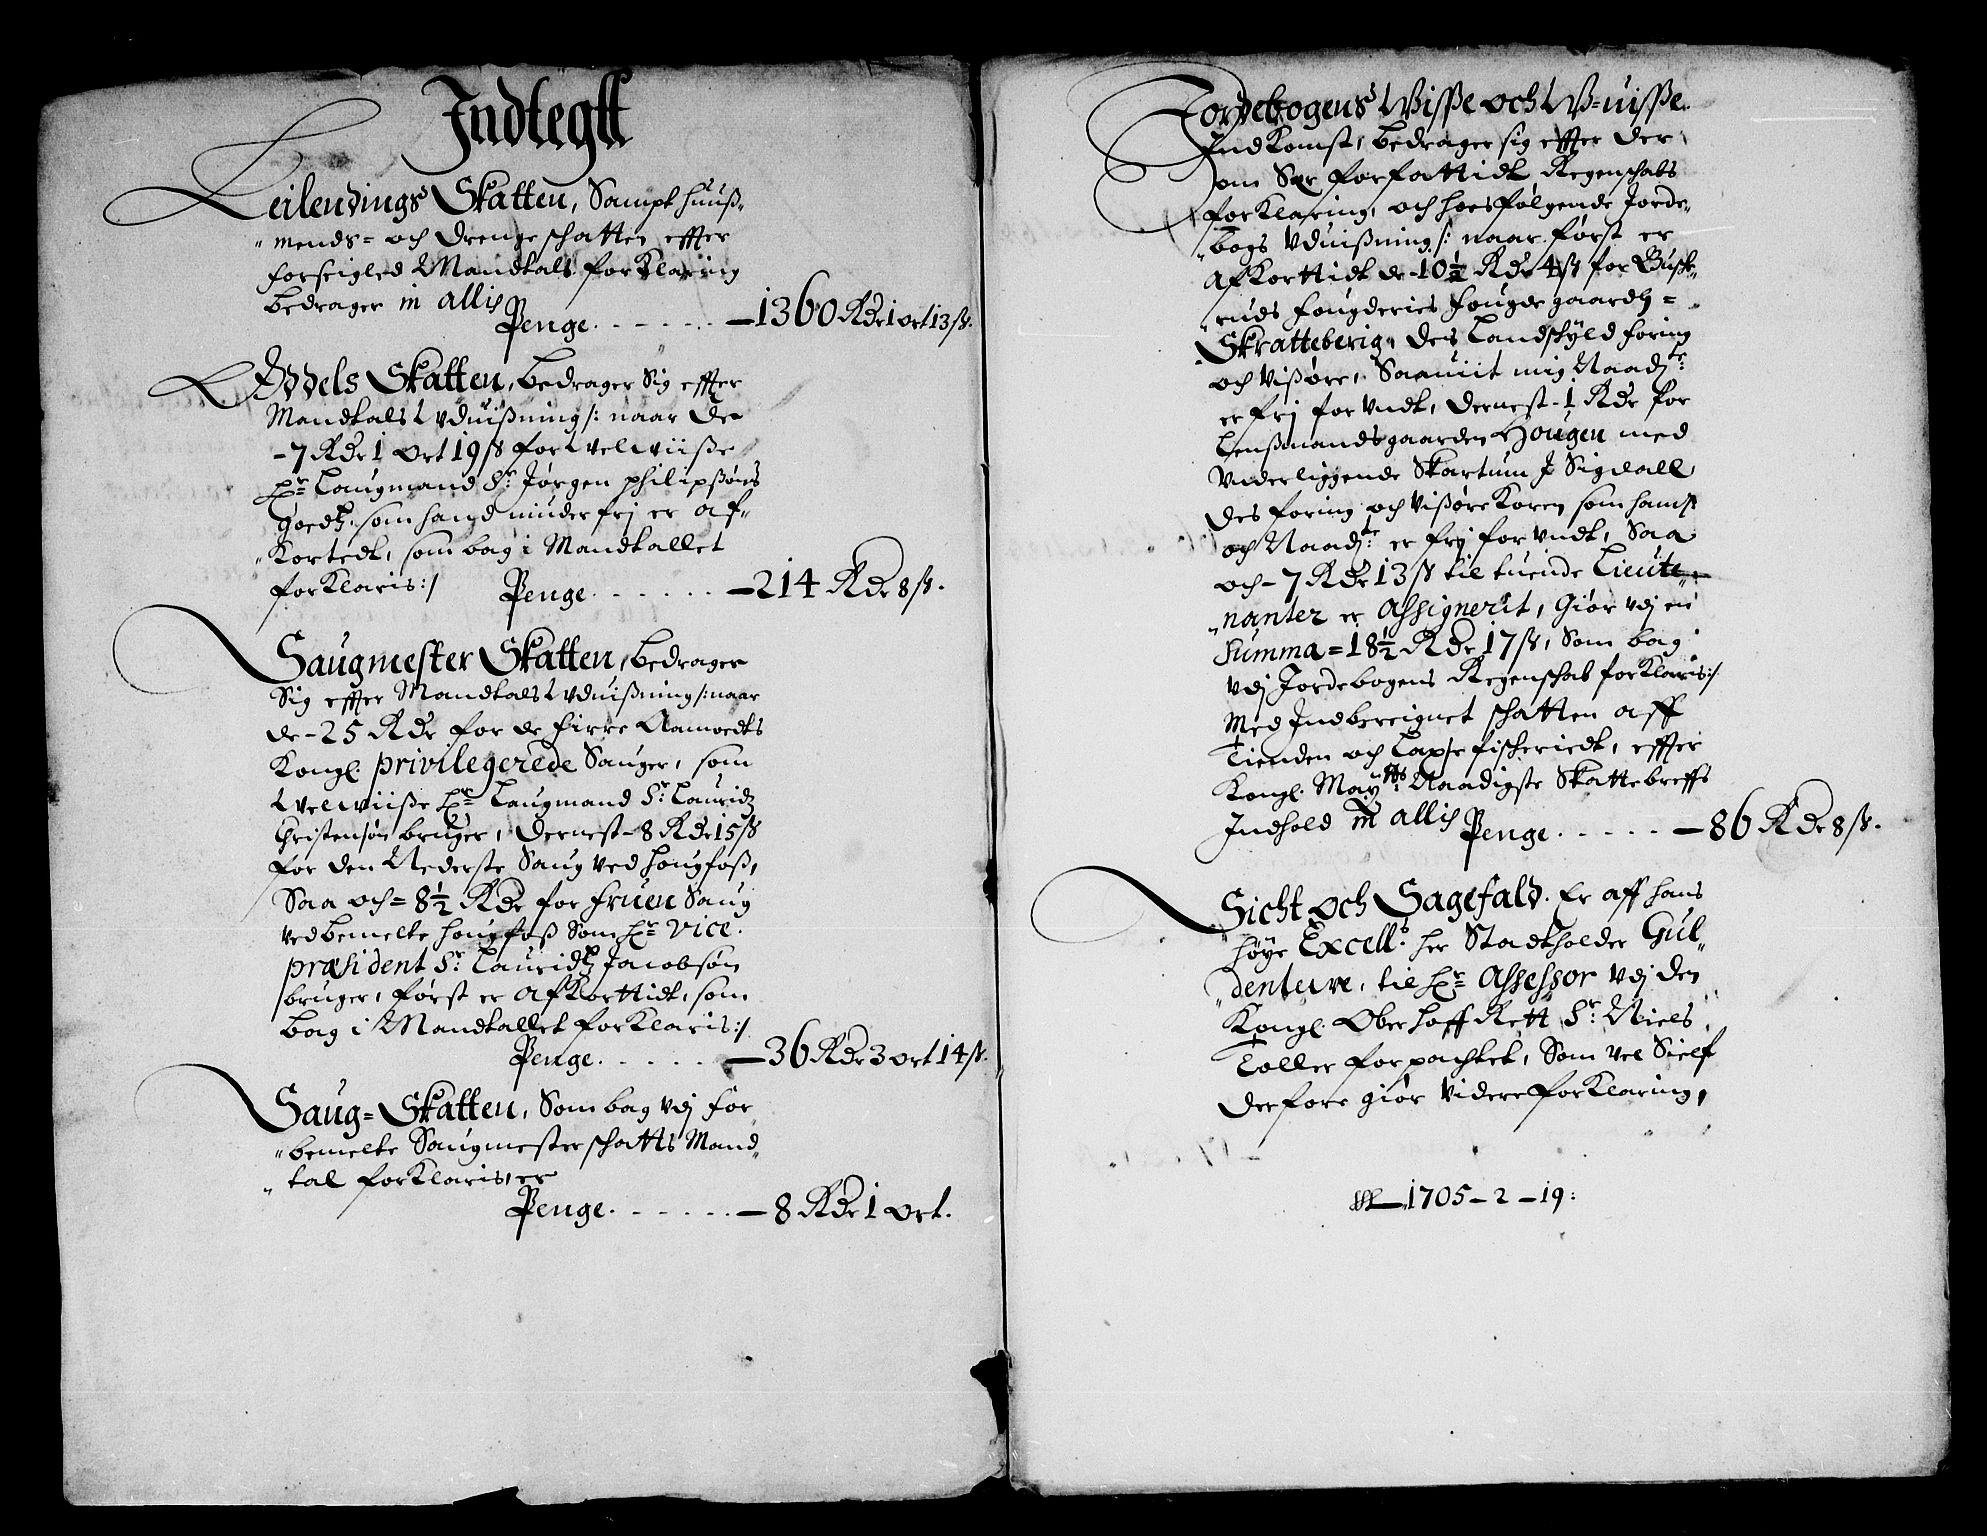 Indtegtt
Leilendings Skatten, Sampt huuß-
"mends- och drenge schatten effter
forseigled Mandtals forklaring
bedrager in allis
Penge. - - - - - - —1360 Rdr 1 ort 13 ß.
Oddels Skatten, bedrager Sig effter
Mandtals Udvißning /: naar de
-7 Rdr 1 ort 19 ß for Velwiiße
Hr: Laugmand Sr: Jørgen philipßøns
goedtz, som hand niuder frj er af-
"Kortedt, som bag i Mandtallet
forklaris :/ Penge. - - - - - - —214 Rdr 8 ß.
Saugmester Skatten, bedrager
Sig effter Mandtals Udvißning /: naar
de -25 Rdr for de firre Aamoedts
Kongl. privilegerede Sauger, som
Velwiiße Hr: Laugmand Sr: Lauridtz
Christensøn bruger, dernest -8 Rdr 15 ß
for den Nederste Saug ved hougfoß,
Saa och = 8½ Rdr for fruen Saug
ved bemelte hougfoß Som Hr: vice.
præsident Sr: Lauridtz Jacobsøn
bruger, først er afkorttidt, som
bag i Mandtallet forklaris :/
Penge. - - - - - —36 Rdr 3 ort 14 ß.
Saug=Skatten, Som bag vdj for
"bemelte Saugmester schatts Mand"
"tal forklaris, er
Penge. - - - - - - —8 Rdr 1 ort.
Jordebogens Wisse och W=uisse.
Indkomst, bedrager sig effter der
om Sær forfattidt Regenschabs
forklaring, och hoesfølgende Jorde-
"bogs Udvißning /: naar først er
afkorttidt de -10½ Rdr 4 ß for Busk-
"ruds fougderies fouge gaardtz =
Skratteberig, des Landschyld foring
och Vißøre, Saauiit mig Naadst:
er frj forundt, dernest -1 Rdr for
Lenßmandsgaarden Hougen med
Underliggende Skartum J Sigdall
des foring och Vißøre Koren som hamß
och Naadst: er frj forundt, Saa
och -7 Rdr 13 ß til tuende Lieute-
"nanter er Assignerit, Giør vdj en
Summa = 18½ Rdr 17 ß, Som bag
vdj Jordebogens Regenschab forklaris :/
Med Indbereignet schatten aff
Tienden och Laxe fischeriedt, effter
Kongl. Maytts: Naadigste Skattebreffs
Indhold in allis Penge. - - - - - —86 Rdr 8 ß.
Sicht och Sagefald. Er aff hans
høye Excell: her Stadtholder Gul-
"denlewe, til Hr: Assessor vdj den
Kongl. Oberhoff Rett Sr: Niels
Toller forpachtet, Som vel Sielf
derfore giør videre forklaring,
1705 - 2 - 19: